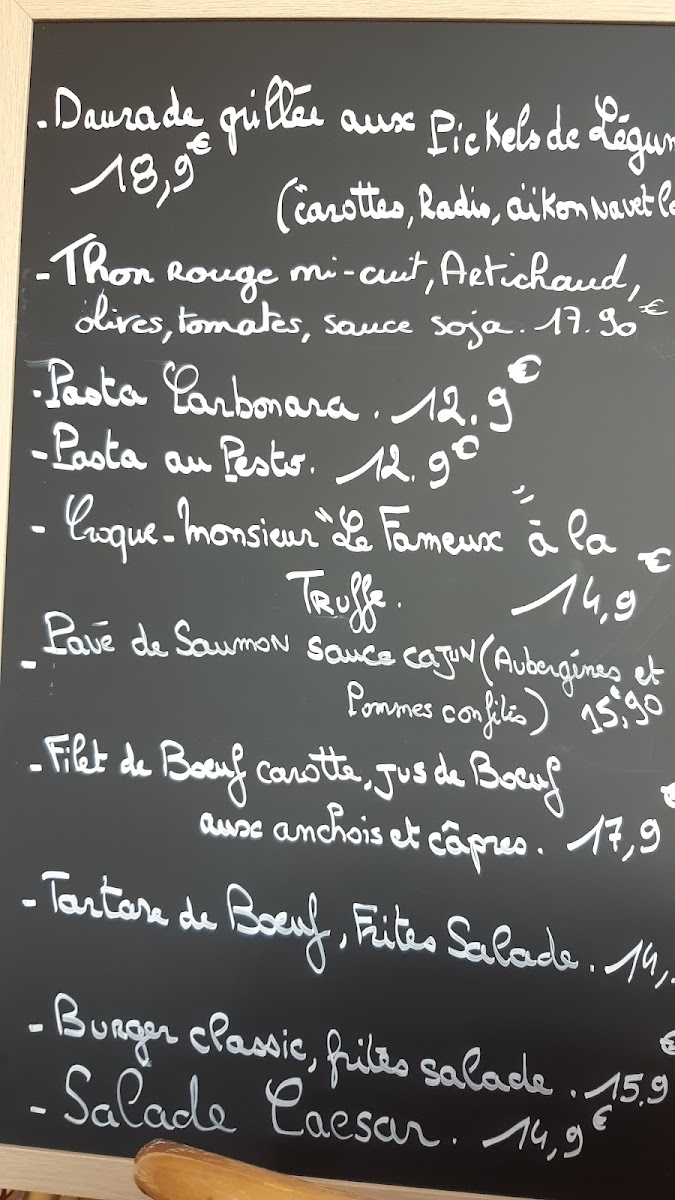 - Daurade grillée aux Pickels de Légum
18,9€
(carottes, Radis, daïkon navet
- Thon Rouge mi-cuit, Artichaud,
olives, tomates, sauce soja. 17.90€
- Pasta Carbonara. 12.9€
- Pasta au Pesto. 12.9€
- Croque-Monsieur "Le Fameux" à la
Truffe. 14,9€
- Pavé de Saumon sauce cajun (Aubergines et
Pommes confites) 15€,90
- Filet de Boeuf carotte, jus de Boeuf
aux anchois et câpres. 17,9€
- Tartare de Boeuf, Frites Salade. 14,
- Burger classic, frites salade. 15.9€
- Salade Caesar. 14,9€